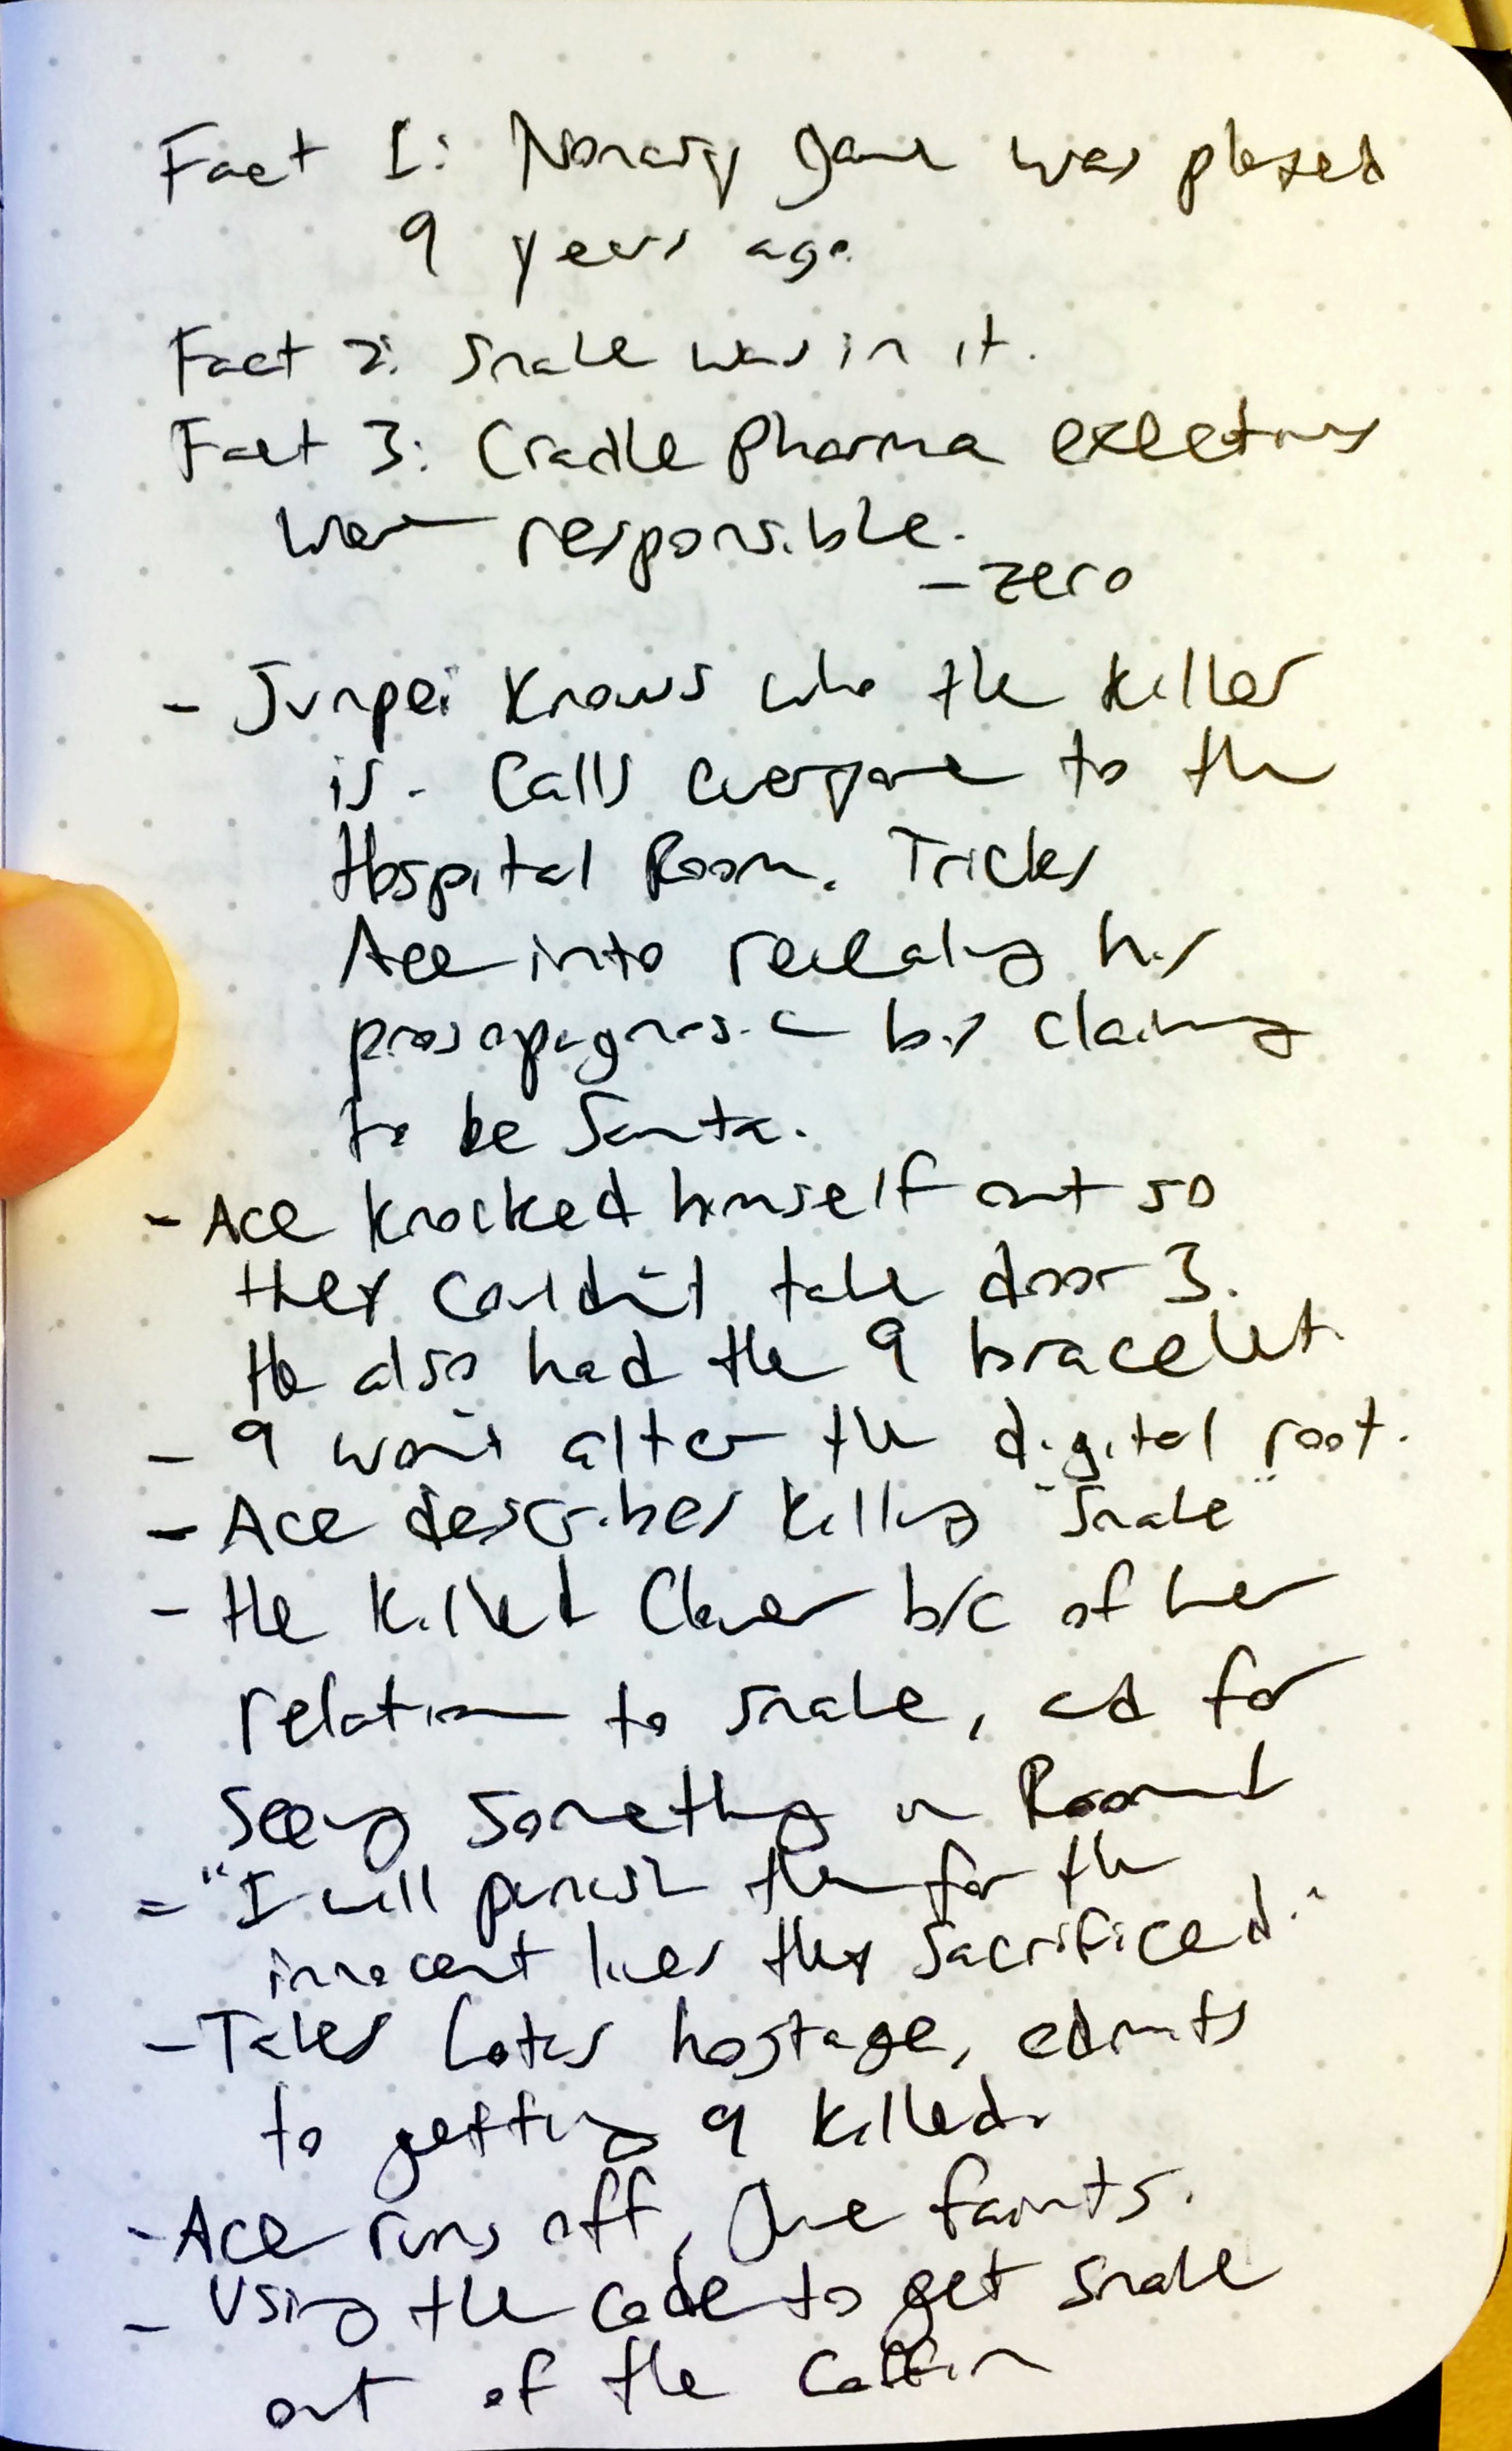 Fact 1: Nonary game was played
9 years ago.
Fact 2: Snake was in it.
Fact 3: Cradle Pharma executives
were responsible.
- zero
- Junpei knows who the killer
is. Calls everyone to the
Hospital Room. Tricks
Ace into revealing his
prosopagnosia by claiming
to be Santa.
- Ace knocked himself out so
they couldn't take door 3.
He also had the 9 bracelet.
- 9 won't alter the digital root.
- Ace describes killing "Snake"
- He killed Clover b/c of her
relation to Snake, and for
seeing something in Room 1
- "I will punish them for the
innocent lives they sacrificed."
- Takes Lotus hostage, admits
to getting 9 killed.
- Ace runs off, June faints.
- Using the code to get Snake
out of the coffin